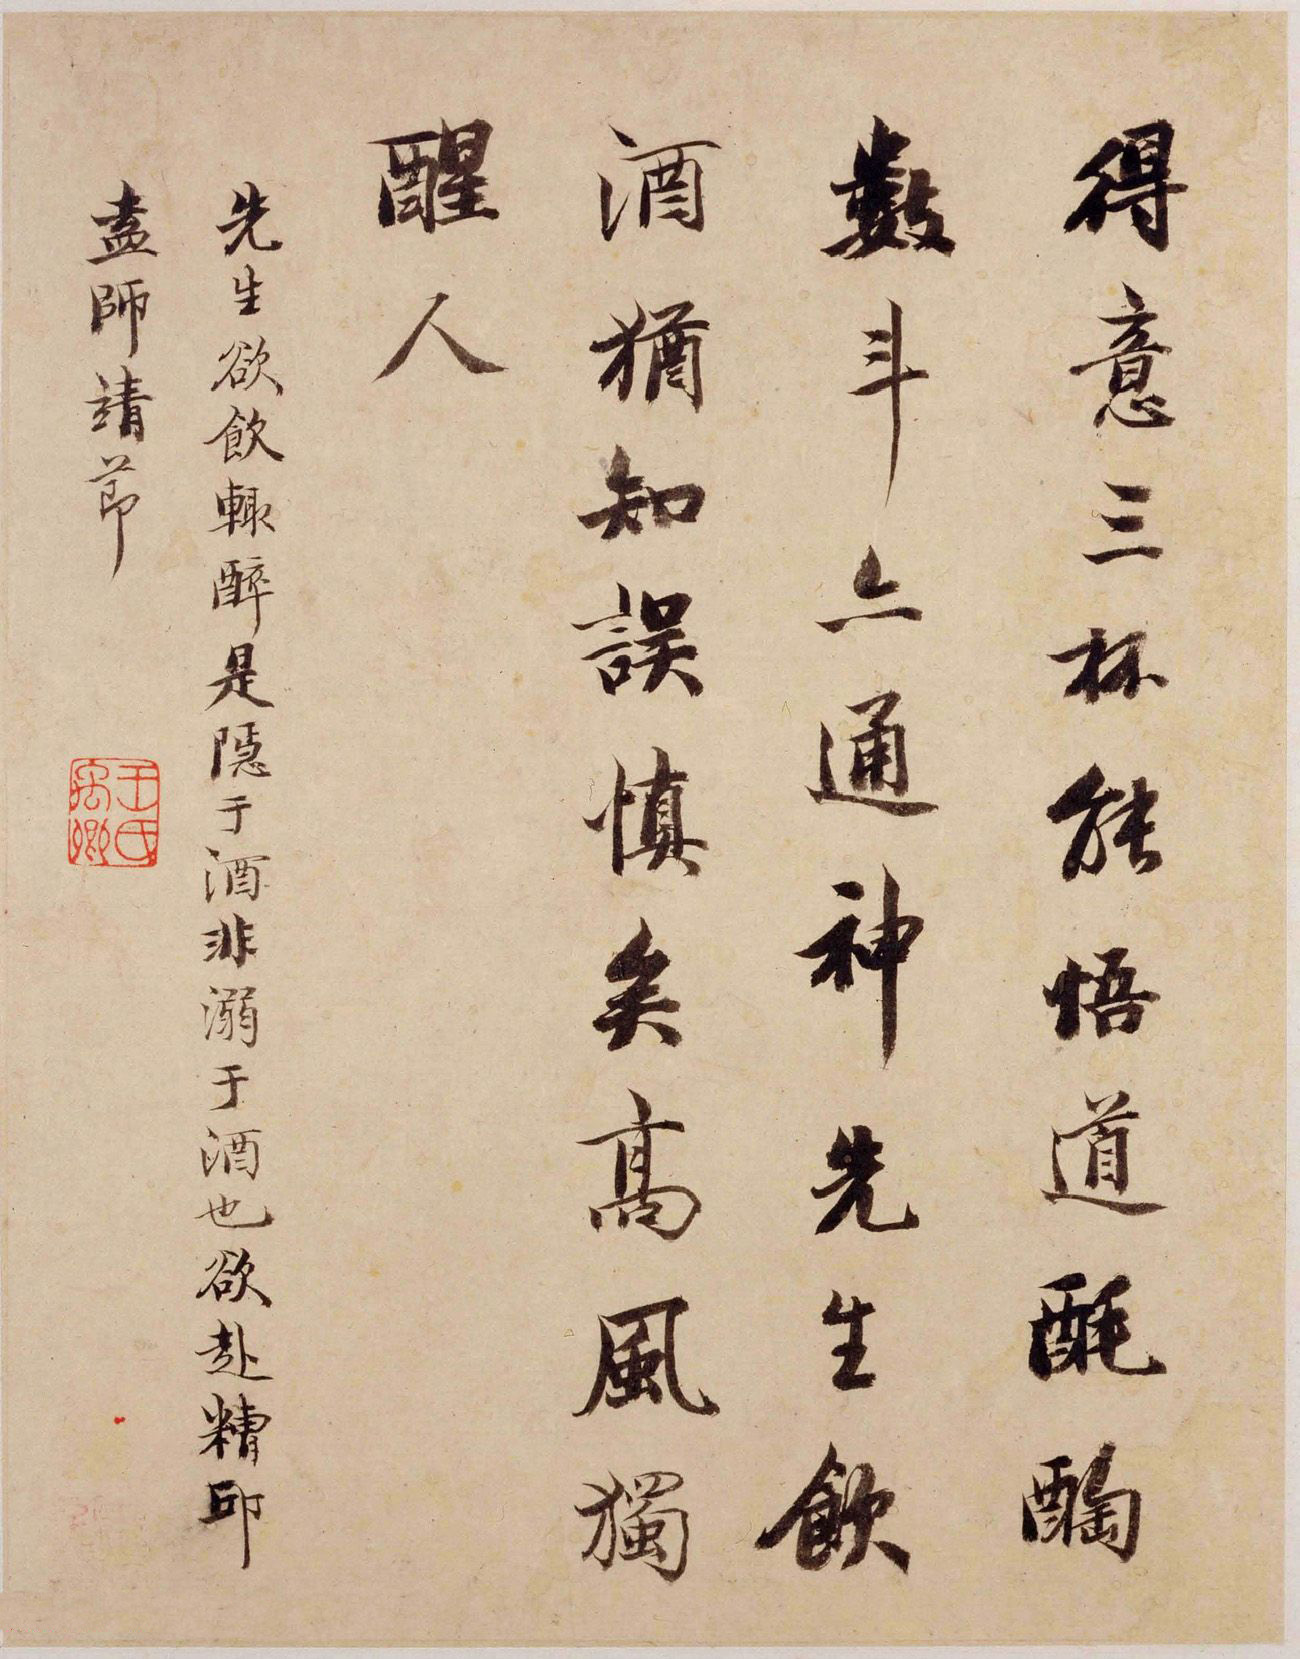 得意三杯能悟道酕醄
數斗亠通神先生飲
酒猶知誤慎矣高風獨
醒人
先生欲飲輒醉是隱于酒非溺于酒也欲赴糟邱
盍師靖節
王氏